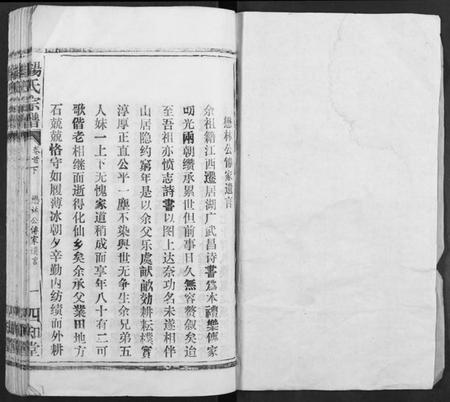 懋林公傳家遺言
余祖籍江西遷居湖广武昌诗書爲本禮樂傳家
叨光兩朝缵承累世但前事日久無容贅叙矣迨
至吾祖亦愤志詩書以图上达奈功名未遂相伴
山居隐约窮年是以余父乐處献畝効耕耘樸實
淳厚正直公平一塵不染與世无争生余兄弟五
人妹一上下无愧家道稍成而享年八十有二可
歌偕老相继而逝得化仙乡矣余承父業田地方
石兢兢恪守如履薄冰朝夕辛勤内纺績而外耕
楊氏宗譜
卷首下
懋林公傳家遺言
一
四知堂